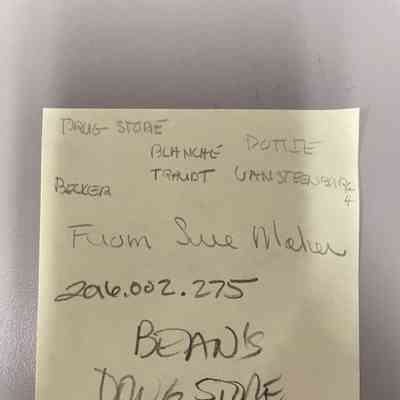 DRUG STORE
BLANCHE DOTTIE
TRAUDT VANSTEENBURG
BECKER 4
From Sue Maher
2016.002.275
BEAN'S
DRUG STORE